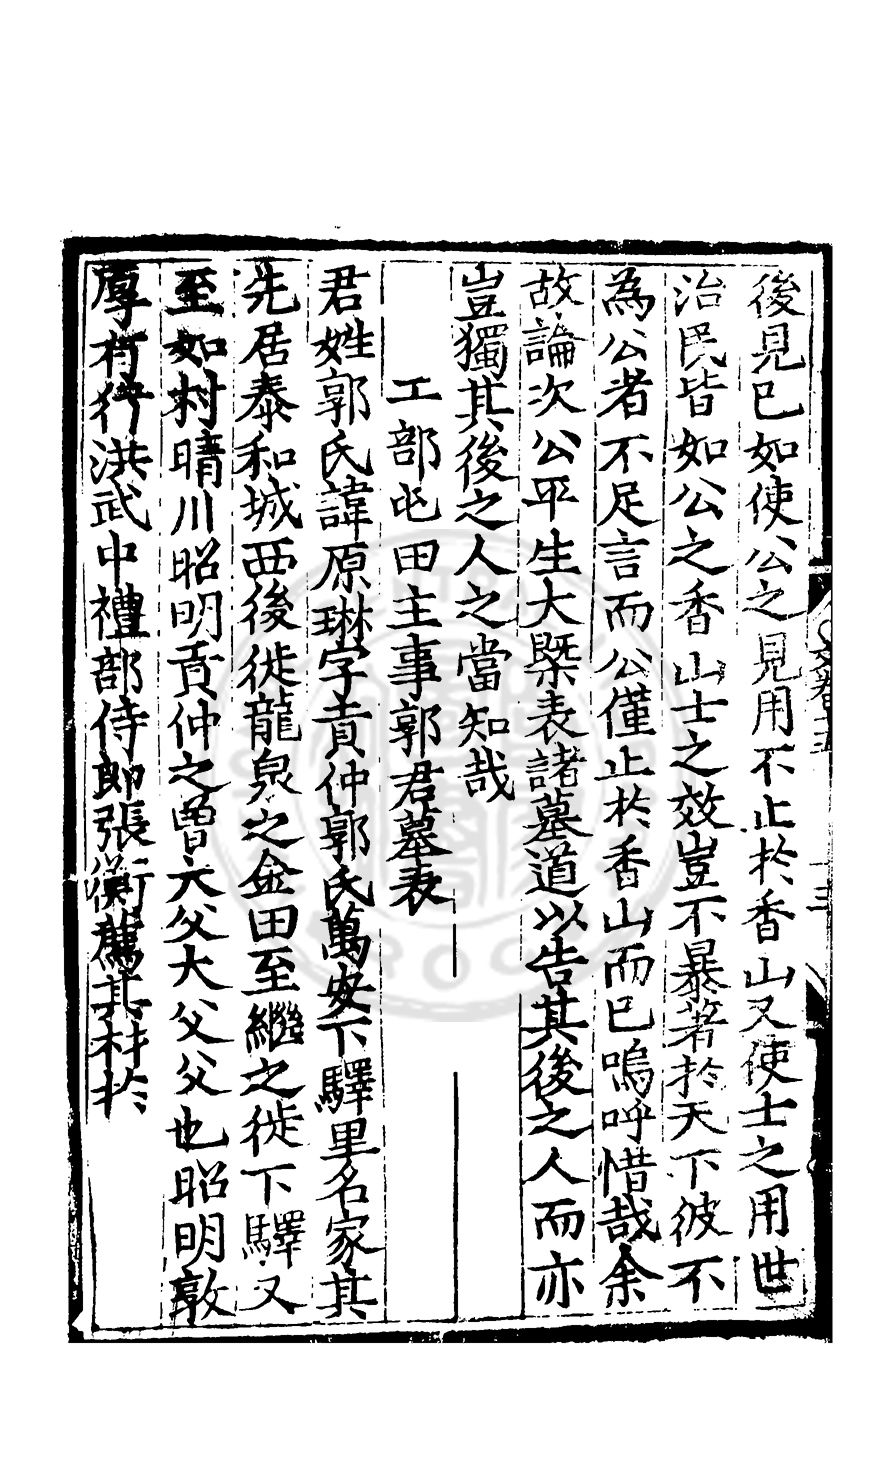 後見巳如使公之見用不止於香山又使士之用世
治民皆如公之香山士之效豈不暴著於天下彼不
為公者不足言而公僅止於香山而巳嗚呼惜哉余
故論次公平生大槩表諸墓道以告其後之人而亦
豈獨其後之人之當知哉
工部屯田主事郭君墓表
君姓郭氏諱原琳字貢仲郭氏萬安下驛里名家其
先居泰和城西後徙龍泉之金田至繼之徙下驛又
至如村晴川昭明貢仲之曽大父大父父也昭明敦
厚有行洪武中禮部侍郎張衡薦其材於